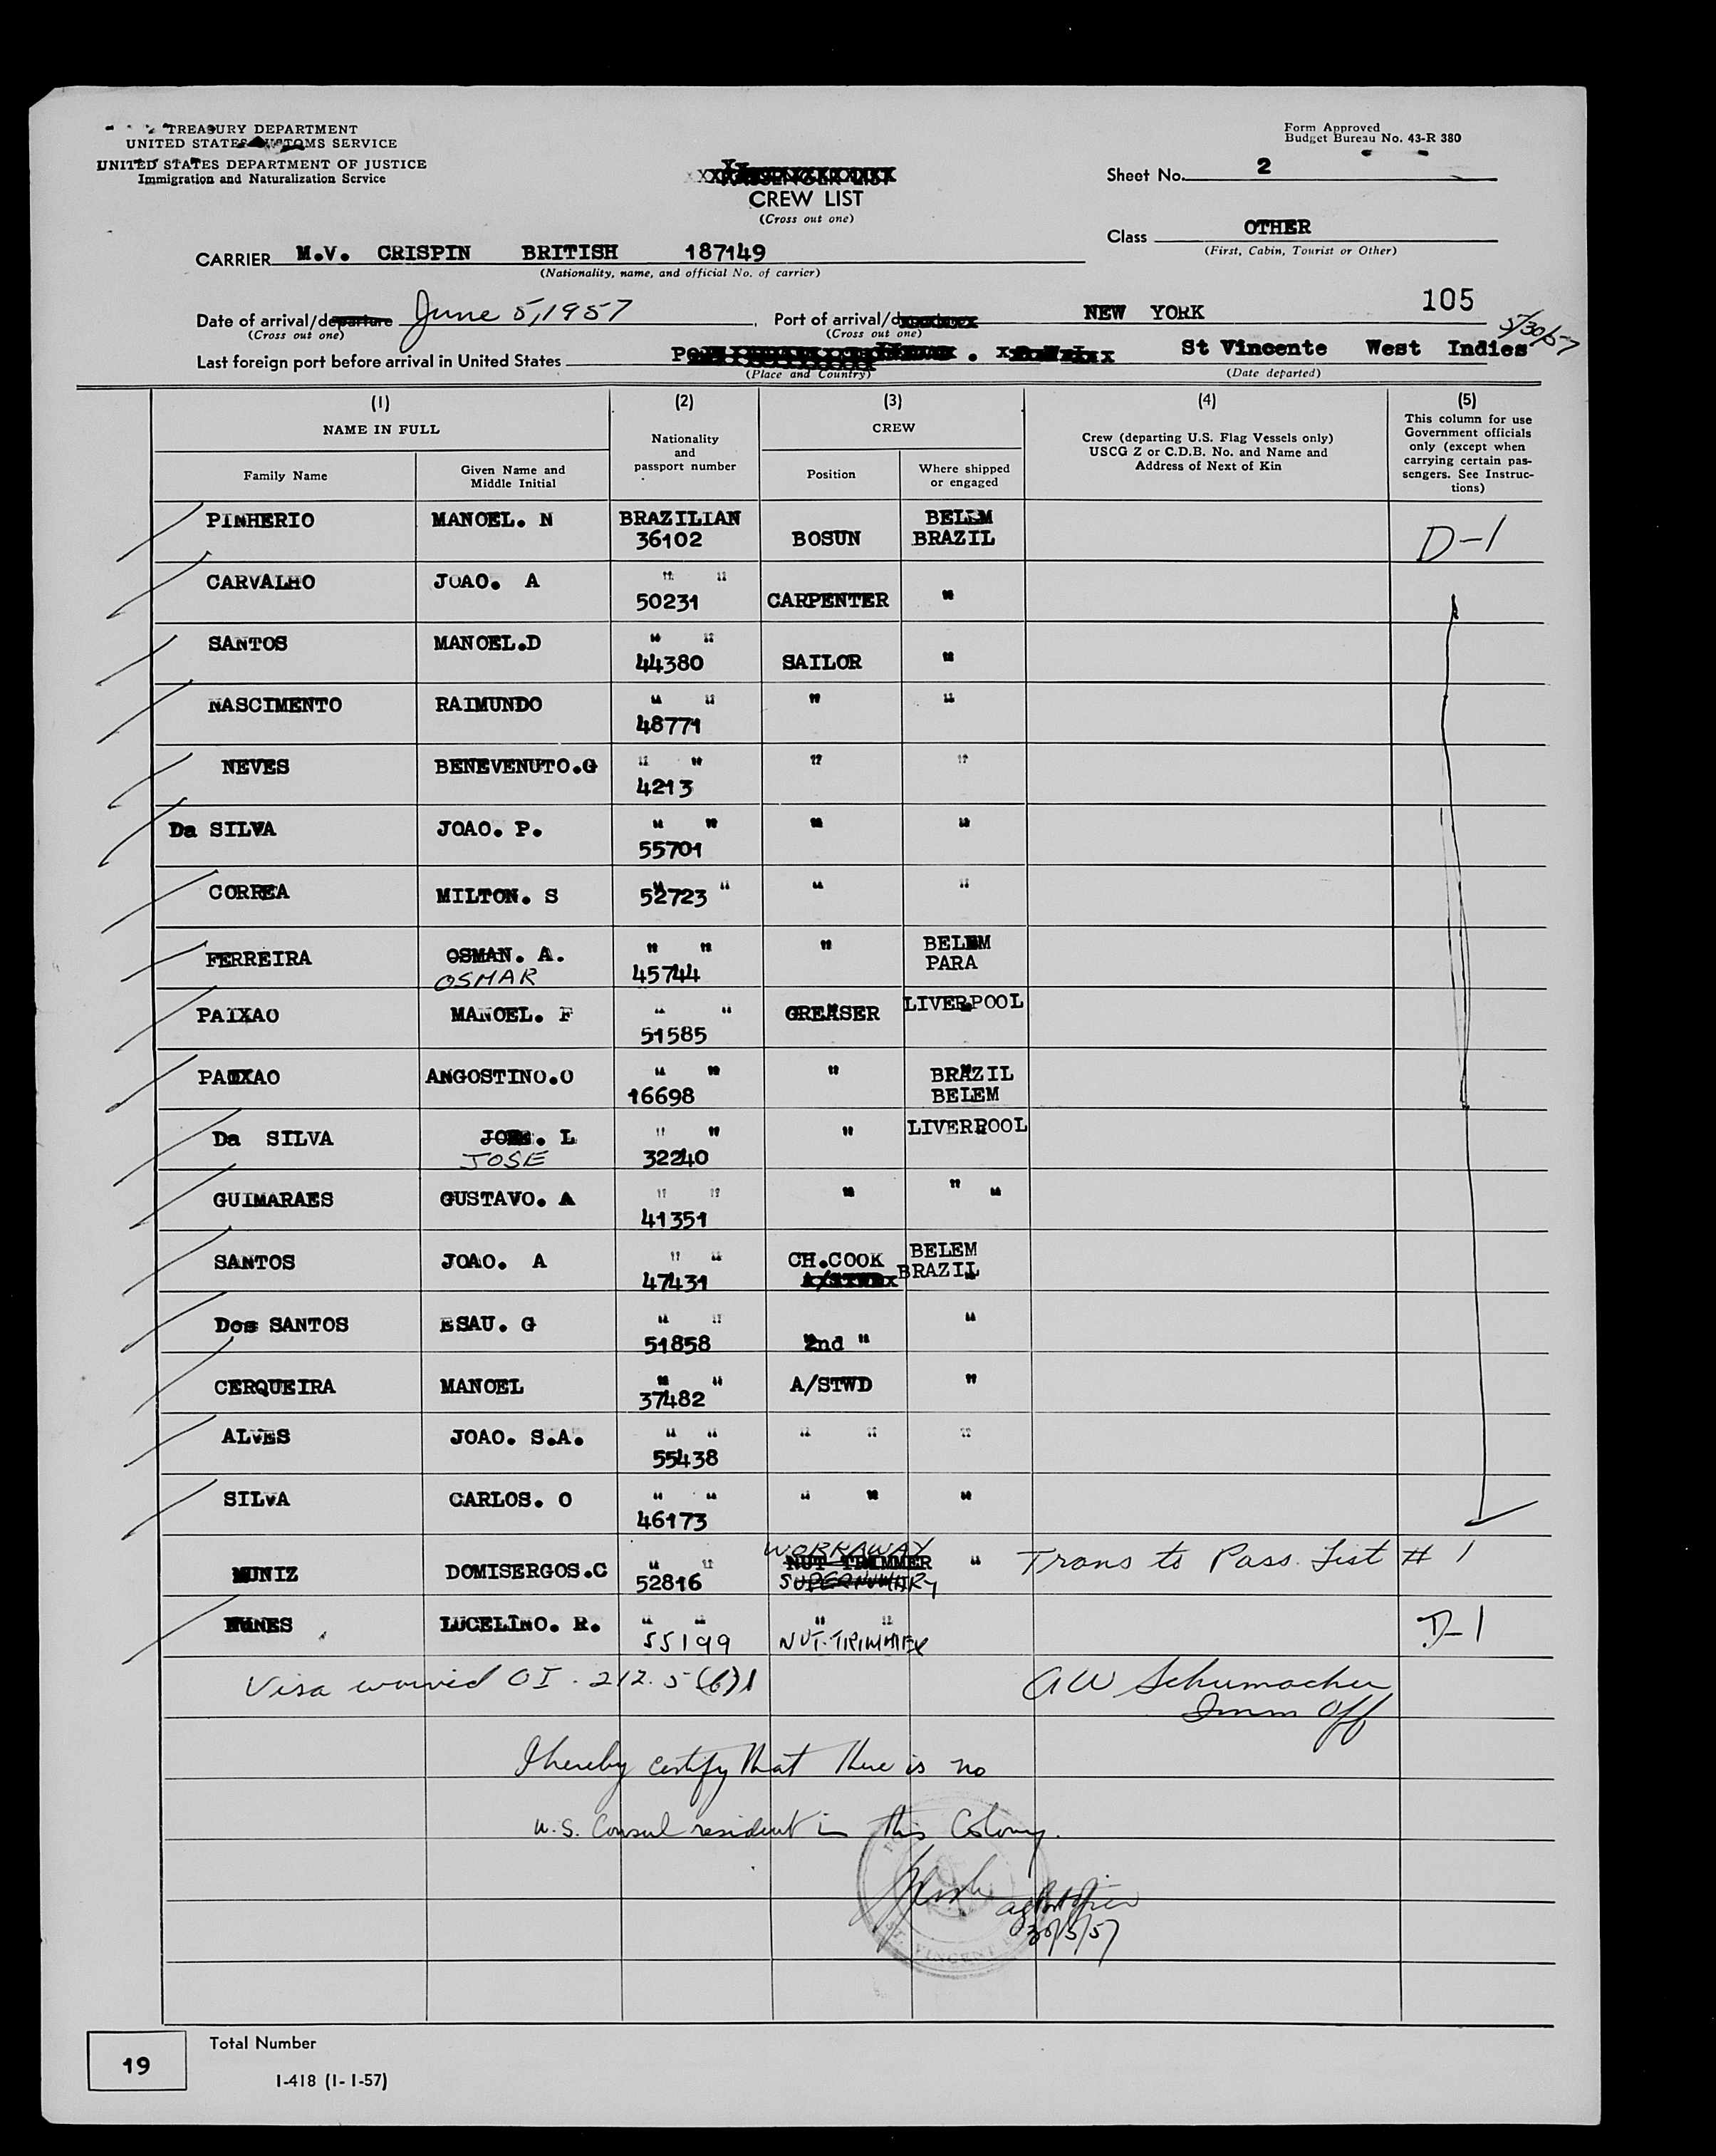 TREASURY DEPARTMENT
UNITED STATES CUSTOMS SERVICE
UNITED STATES DEPARTMENT OF JUSTICE
Immigration and Naturalization Service
Form Approved
Budget Bureau No. 43-R 380
PASSENGER LIST
CREW LIST
(Cross out one)
Sheet No. 2
Class OTHER
(First, Cabin, Tourist or Other)
CARRIER M.V. CRISPIN BRITISH 187149
(Nationality, name, and official No. of carrier)
Date of arrival/departure June 5, 1957
(Cross out one)
Port of arrival/ NEW YORK 105
(Cross out one)
5/30/57
Last foreign port before arrival in United States St Vincente West Indies
(Place and Country) (Date departed)
(1) (2) (3) (4) (5)
NAME IN FULL
Family Name
Given Name and Middle Initial
Nationality and passport number
CREW
Position
Where shipped or engaged
Crew (departing U.S. Flag Vessels only)
USCG Z or C.D.B. No. and Name and
Address of Next of Kin
This column for use
Government officials
only (except when
carrying certain pas-
sengers. See Instruc-
tions)
PINHERIO MANOEL. N BRAZILIAN 36102 BOSUN BELEM BRAZIL D-1
CARVALHO JOAO. A " " 50231 CARPENTER "
SANTOS MANOEL.D " " 44380 SAILOR "
NASCIMENTO RAIMUNDO " " 48771 " "
NEVES BENEVENUTO.G " " 4213 " "
Da SILVA JOAO. P. " " 55701 " "
CORREA MILTON. S " " 52723 " "
FERREIRA OSMAN. A. OSMAR " " 45744 " BELEM PARA
PAIXAO MANOEL. F " " 51585 GREASER LIVERPOOL
PAIXAO ANGOSTINO.O " " 16698 " BRAZIL BELEM
Da SILVA L JOSE " " 32240 " LIVERPOOL
GUIMARAES GUSTAVO. A " " 41351 " " "
SANTOS JOAO. A " " 47431 CH.COOK A/STWD BELEM BRAZIL
Dos SANTOS ESAU. G " " 51858 2nd " "
CERQUEIRA MANOEL " " 37482 A/STWD "
ALVES JOAO. S.A. " " 55438 " " "
SILVA CARLOS. O " " 46173 " " "
MUNIZ DOMISERGOS.C " " 52816 WORKAWAY NUT TRIMMER SUPERNUMARY " Trans to Pass. List # 1
NUNES LUCELINO. R. " " 55199 " " NUT-TRIMMER D-1
Visa waived OI - 212.5 (b)1
A W Schumacher
Imm Off
I hereby certify that there is no
U.S. Consul resident in this Colony.
30/5/57
ST. VINCENT
Total Number
19
I-418 (1-1-57)